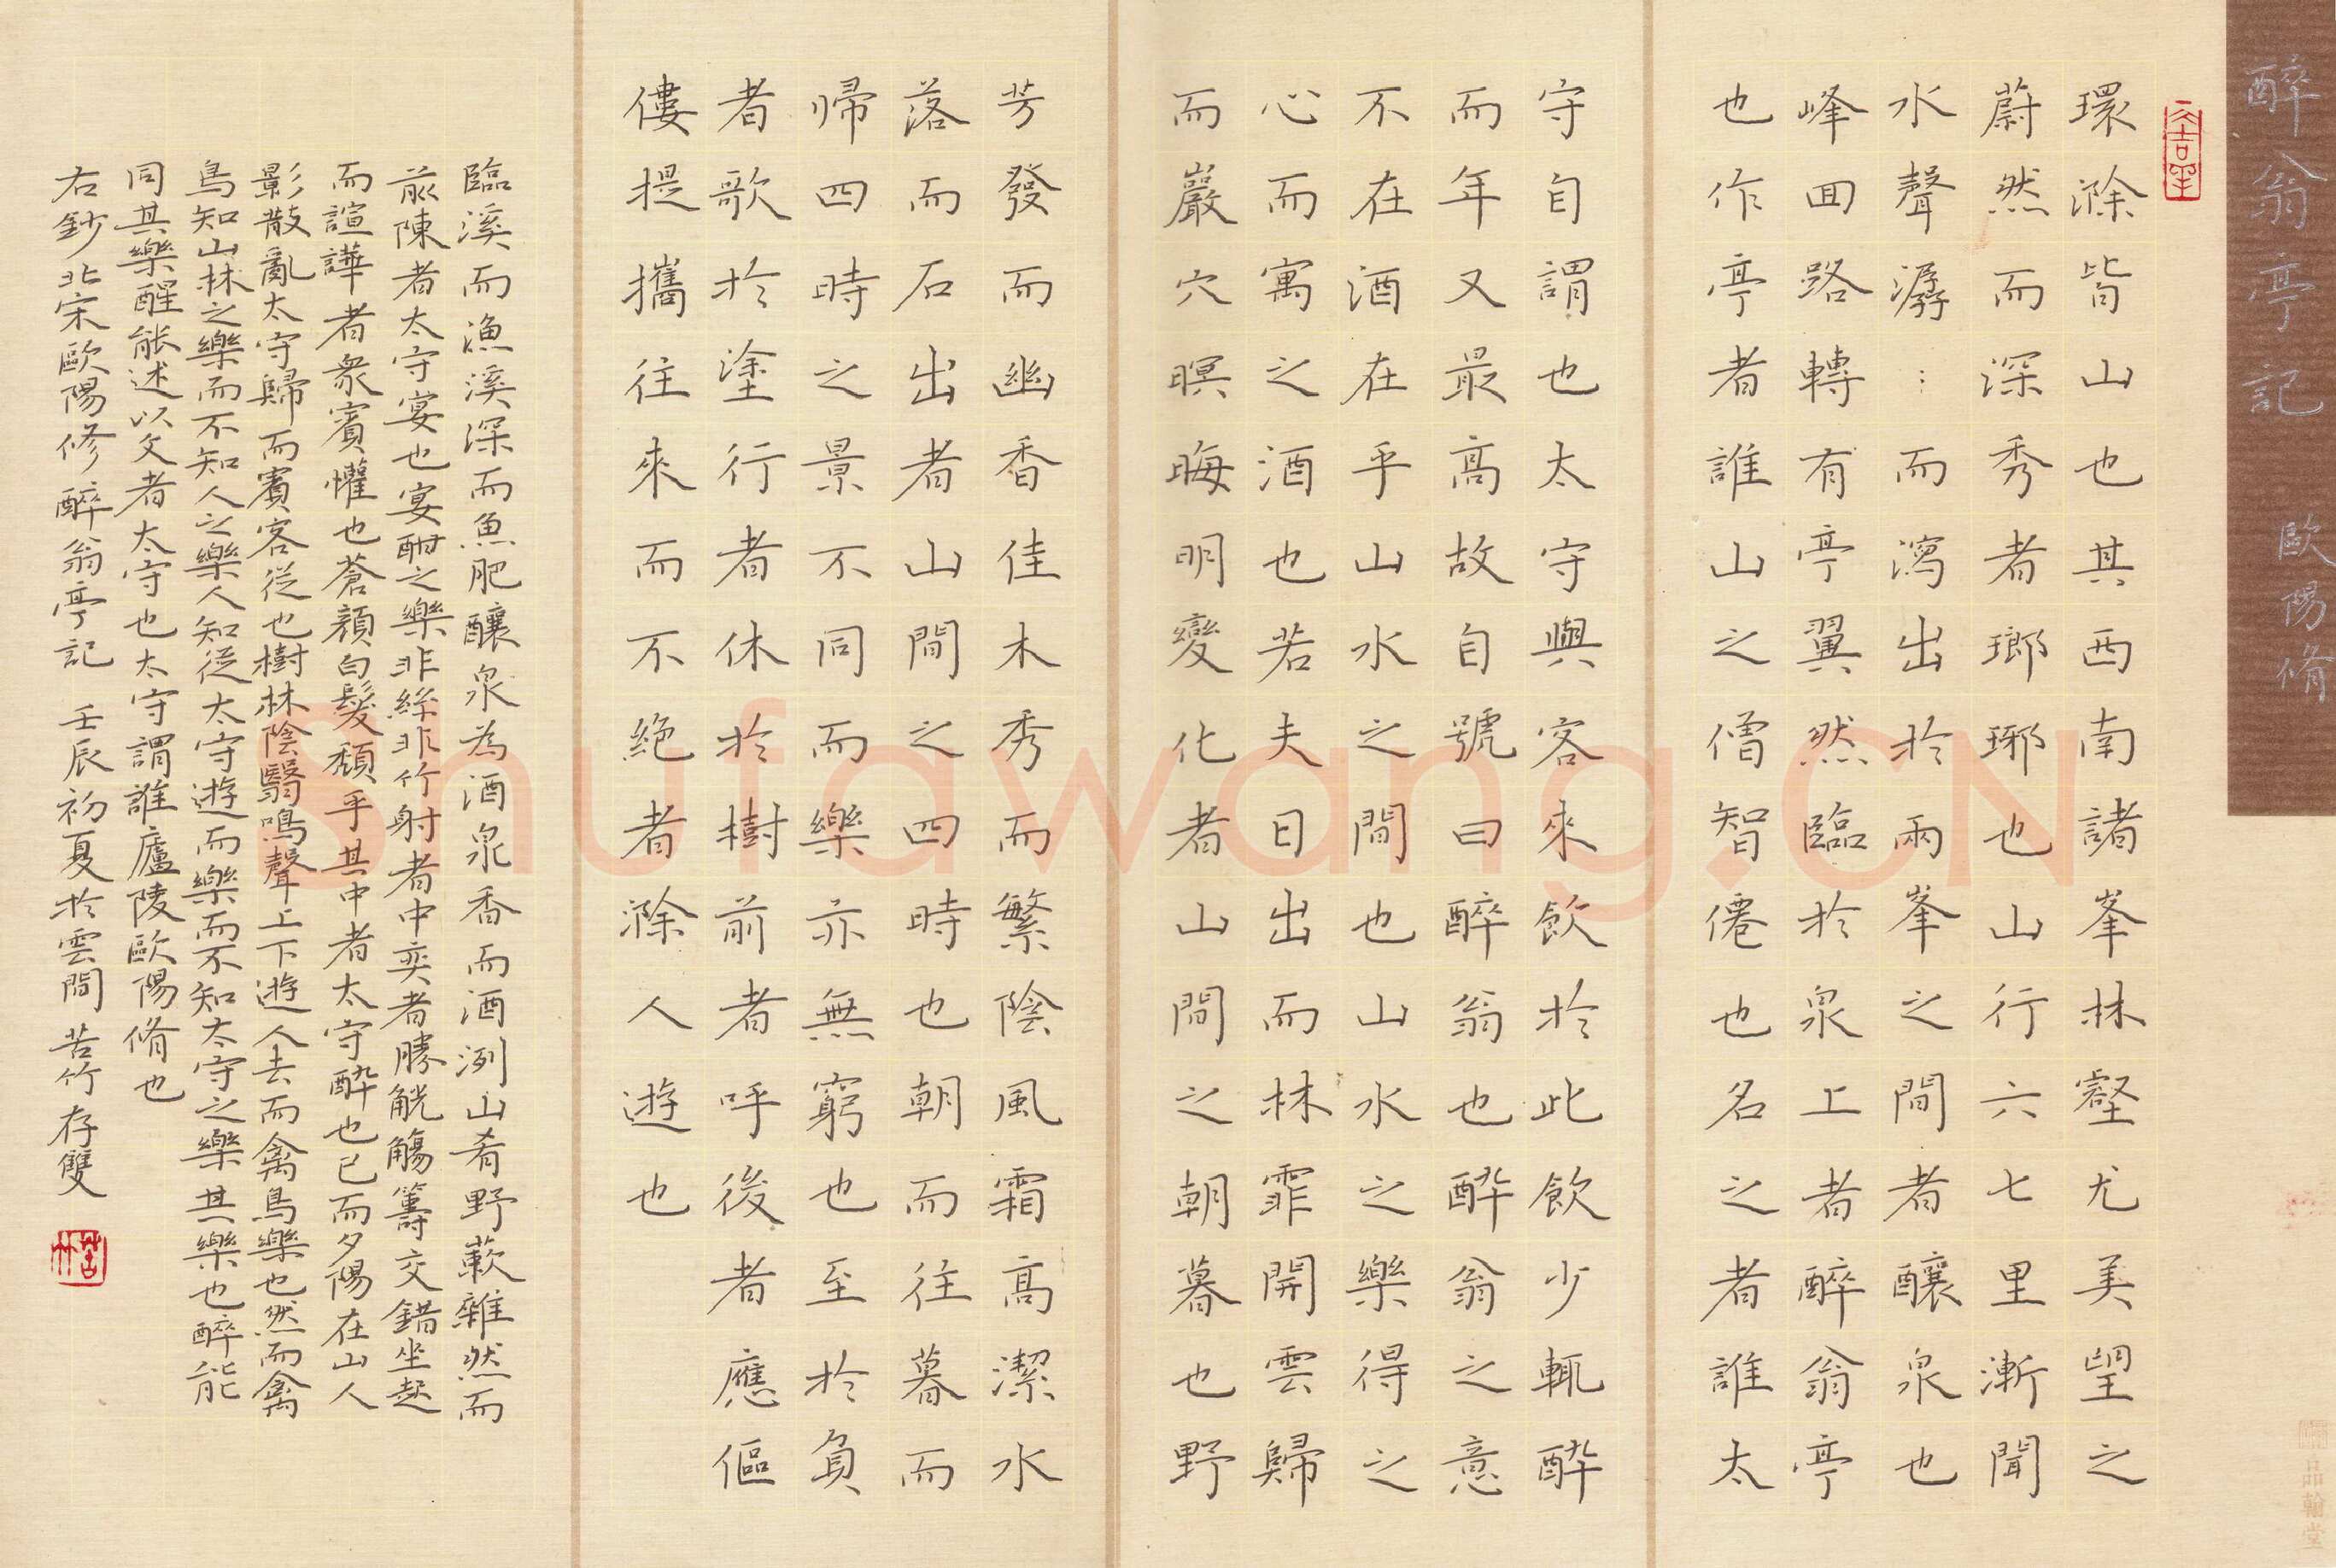 醉翁亭記 歐陽脩
環滁皆山也其西南諸峯林壑尤美望之
蔚然而深秀者瑯琊也山行六七里漸聞
水聲潺⋮而瀉出於兩峯之間者釀泉也
峰回路轉有亭翼然臨於泉上者醉翁亭
也作亭者誰山之僧智僊也名之者誰太
守自謂也太守與客來飲於此飲少輒醉
而年又最高故自號曰醉翁也醉翁之意
不在酒在乎山水之間也山水之樂得之
心而寓之酒也若夫日出而林霏開雲歸
而巖穴暝晦明變化者山間之朝暮也野
芳發而幽香佳木秀而繁陰風霜高潔水
落而石出者山間之四時也朝而往暮而
歸四時之景不同而樂亦無窮也至於負
者歌於塗行者休於樹前者呼後者應傴
僂提攜往來而不絕者滁人遊也
臨溪而漁溪深而魚肥釀泉為酒泉香而酒洌山肴野蔌雜然而
前陳者太守宴也宴酣之樂非絲非竹射者中奕者勝觥觴籌交錯坐起
而諠譁者衆賓懽也蒼顏白髮頹乎其中者太守醉也已而夕陽在山人
影散亂太守歸而賓客從也樹林陰翳鳴聲上下遊人去而禽鳥樂也然而禽
鳥知山林之樂而不知人之樂人知從太守遊而樂而不知太守之樂其樂也醉能
同其樂醒能述以文者太守也太守謂誰廬陵歐陽脩也
右鈔北宋歐陽修醉翁亭記 壬辰初夏於雲間苦竹存雙
苦竹
品翰堂
Shufawang.CN